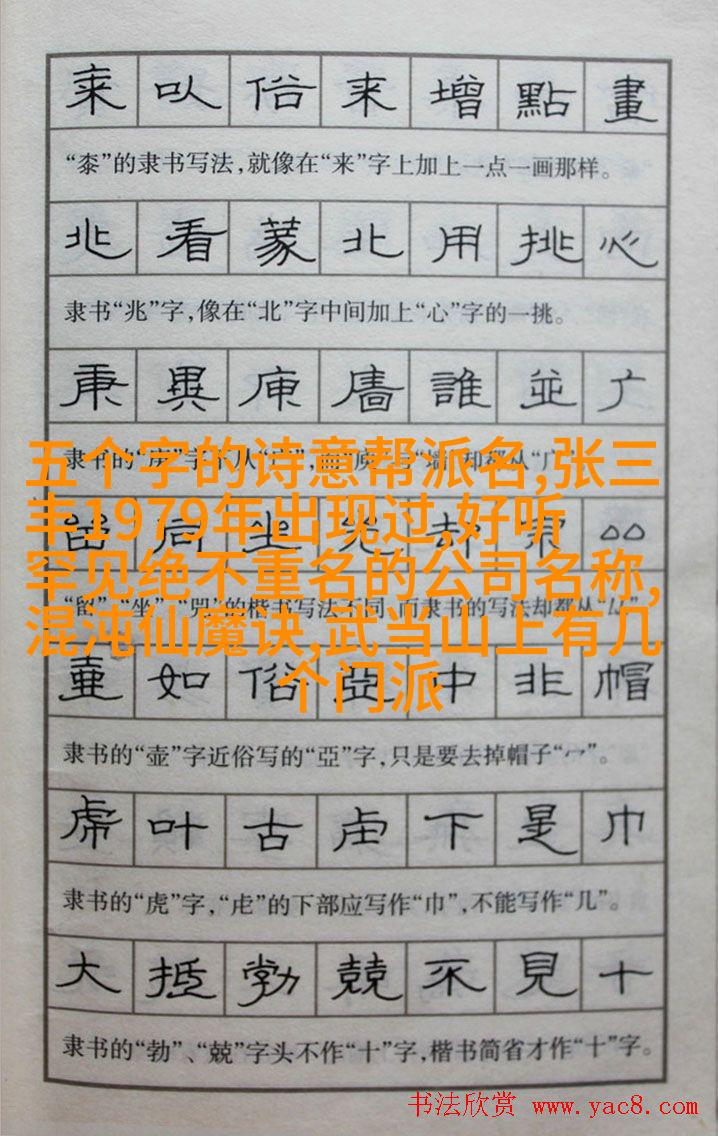 来以俗来增點畫
“桼”的隶书写法，就像在“来”字上加上一点一画那样。
兆看篆北用挑心
隶书“兆”字，像在“北”字中间加上“心”字的一挑。
庚異庫廧誰並广
五个字的诗意帮派名,张三
丰1979年出现过,好听
罕见绝不重名的公司名称,
混沌仙魔诀,武当山上有几
个门派
壷如俗亞中非帽
隶书的“壶”字近俗写的“亞”字，只是要去掉帽子“宀”。
虎叶古虍下是巾
隶书的“虎”字，“虍”的下部应写作“巾”，不能写作“几”。
大抵勃兢不見十
隶书的“勃”、“兢”字头不作“十”字，楷书简省才作“十”字。
书法欣赏 www.yac8.com